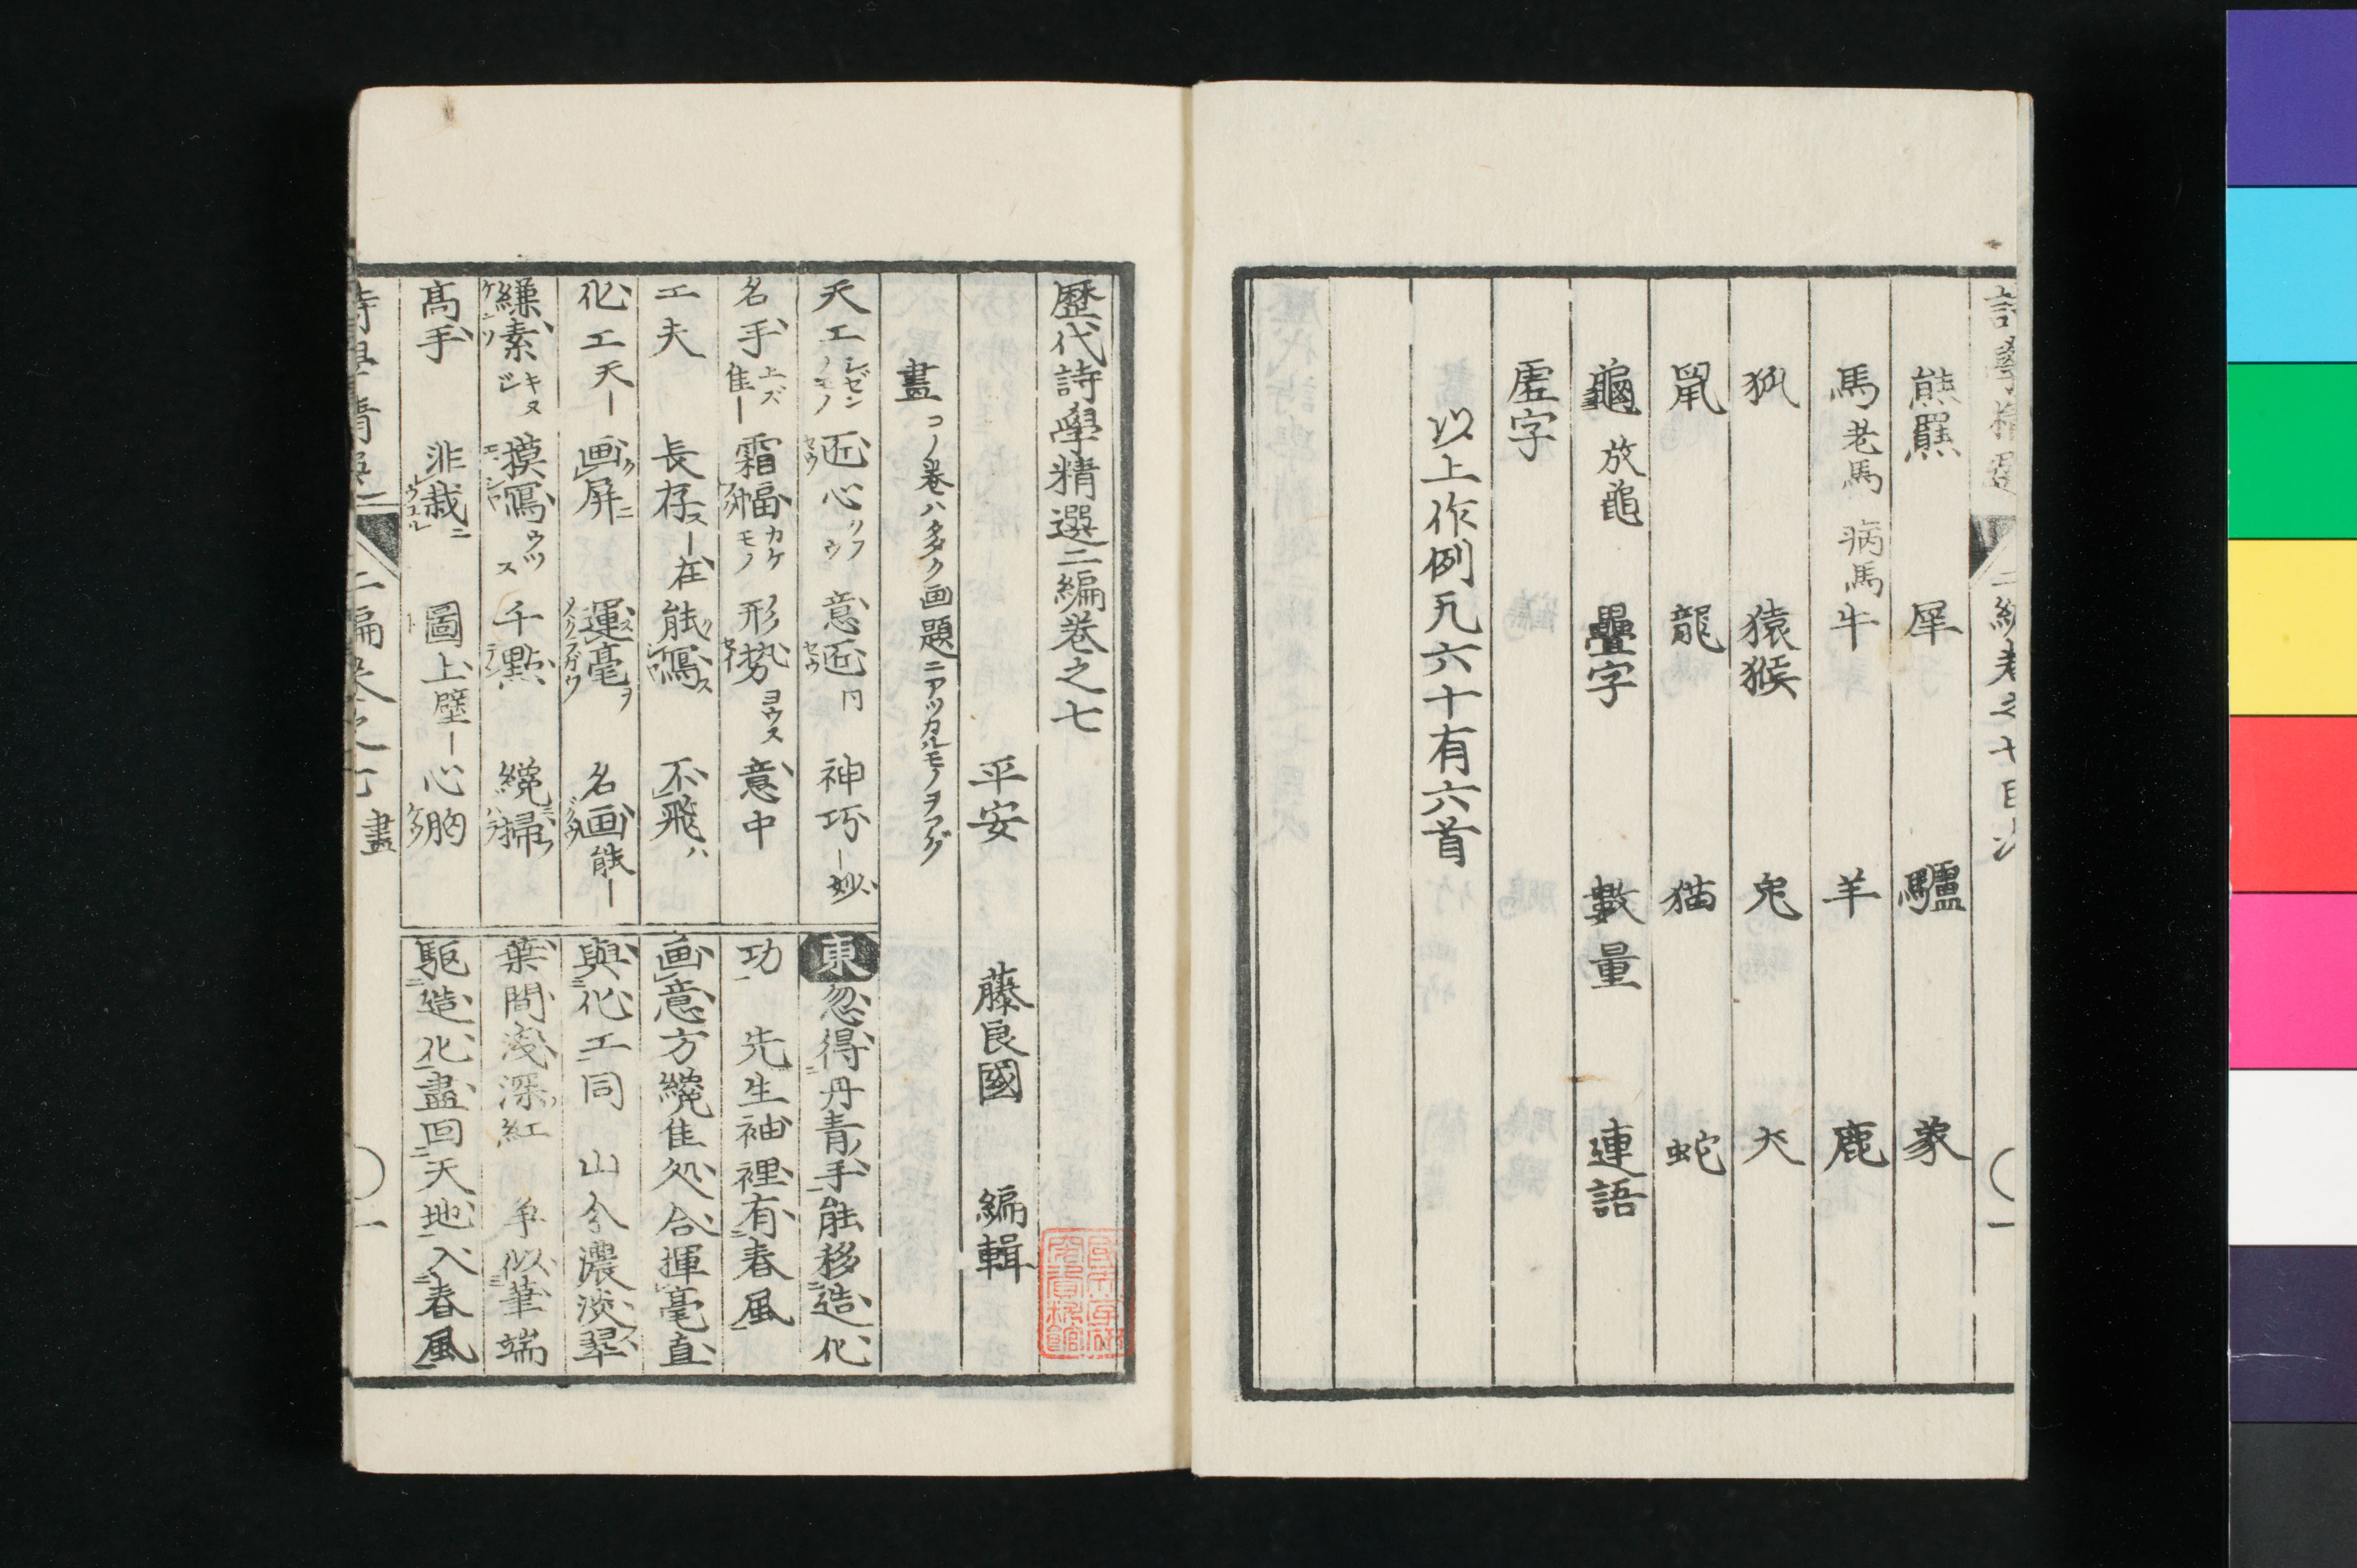 熊羆 犀 驢 象
馬 老馬 病馬 牛 羊 鹿
狐 猿猴 兔 犬
鼠 龍 猫 蛇
龜 放龜 疊字 數量 連語
虚字
以上作例凡六十有六首
歷代詩學精選二編巻之七
平安 藤良國 編輯
畫 コノ巻ハ多ク画題ニアツカルモノヲアグ
天工 シゼンノモノ 匠心 クフウ 意匠 神巧 ー妙
名手 上ズ 佳ー 霜幅 カケモノ 形勢 ヨウス 意中
工夫 長存 ー在 能寫 不飛
化工 天ー 画屏 運毫 名画 能ー
縑素 キヌ 摸寫 ウツス 千點 纔掃
高手 非栽 圖上 壁ー 心胸
東 忽得丹青手能移造化
功 先生袖裡有春風
画意方纔佳処合揮毫直
與化工同 山分濃淡翠
葉間淺深紅 争似筆端
駆造化盡回天地入春風
畫
一